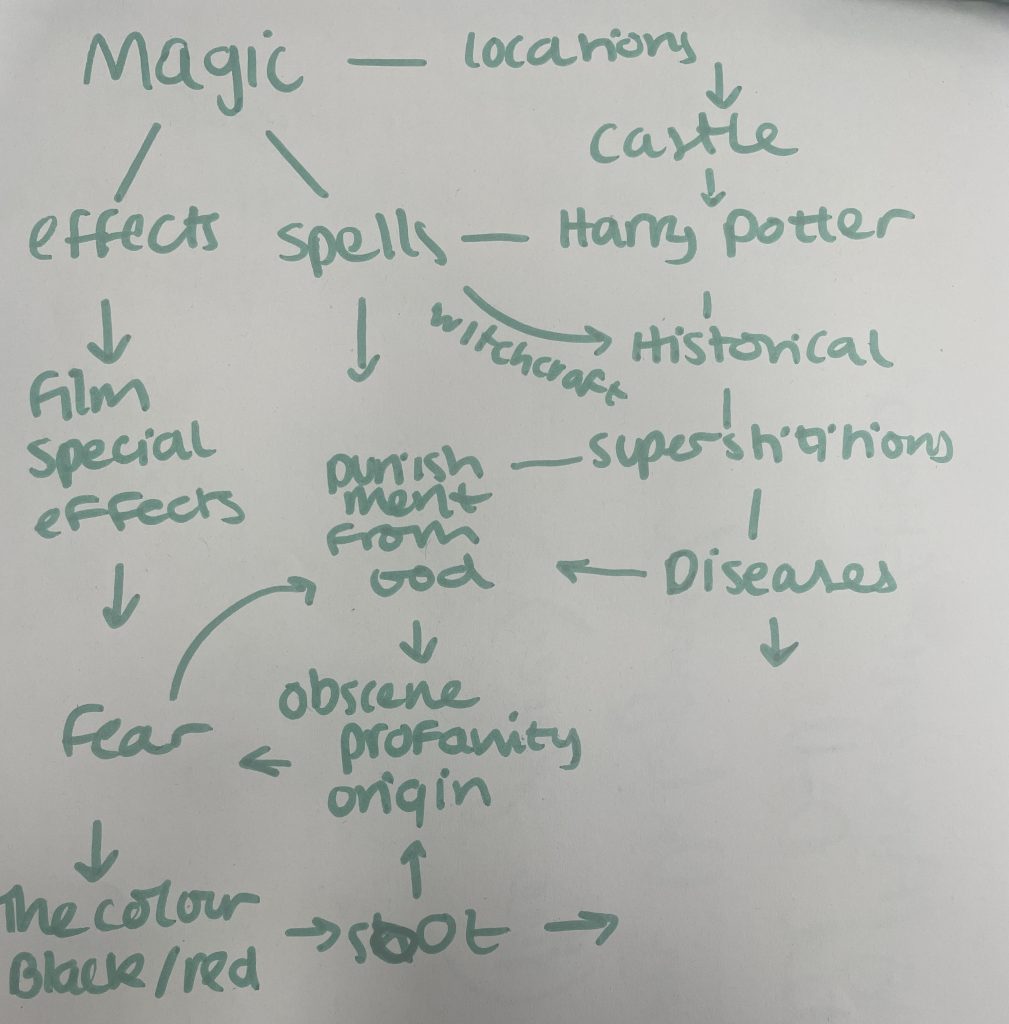 Magic
locations
castle
effects
spells
Harry Potter
witchcraft
Historical
film
special
effects
punish
ment
from
God
superstititions
Diseases
fear
obscene
profanity
origin
The colour
Black/red
soot